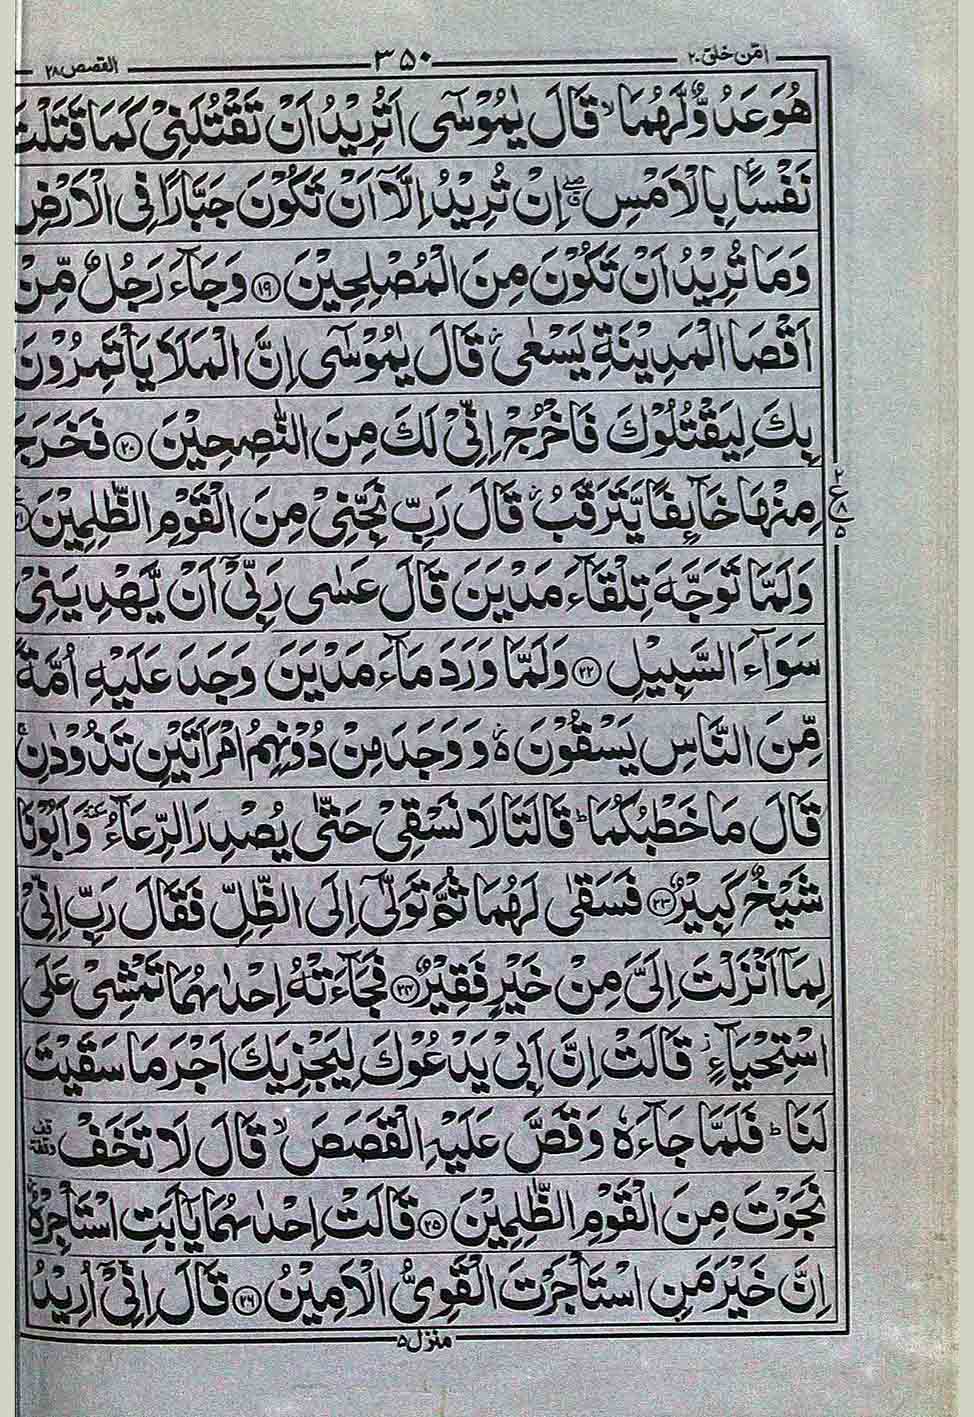 القصص ٢٨ ٣٥٠ امّن خلق ٢٠
هُوَ عَدُوٌّ لَّهُمَا ۙ قَالَ يٰمُوْسٰۤى اَتُرِيْدُ اَنْ تَقْتُلَنِيْ كَمَا قَتَلْتَ
نَفْسًۢا بِالْاَمْسِ ۖۗ اِنْ تُرِيْدُ اِلَّاۤ اَنْ تَكُوْنَ جَبَّارًا فِي الْاَرْضِ
وَمَا تُرِيْدُ اَنْ تَكُوْنَ مِنَ الْمُصْلِحِيْنَ ﴿۱۹﴾ وَجَآءَ رَجُلٌ مِّنْ
اَقْصَا الْمَدِيْنَةِ يَسْعٰى ؗ قَالَ يٰمُوْسٰۤى اِنَّ الْمَلَاَ يَاْتَمِرُوْنَ
بِكَ لِيَقْتُلُوْكَ فَاخْرُجْ اِنِّيْ لَكَ مِنَ النّٰصِحِيْنَ ﴿۲۰﴾ فَخَرَجَ
مِنْهَا خَآئِفًا يَّتَرَقَّبُ ؗ قَالَ رَبِّ نَجِّنِيْ مِنَ الْقَوْمِ الظّٰلِمِيْنَ ﴿۲۱﴾
وَلَمَّا تَوَجَّهَ تِلْقَآءَ مَدْيَنَ قَالَ عَسٰى رَبِّيْۤ اَنْ يَّهْدِيَنِيْ
سَوَآءَ السَّبِيْلِ ﴿۲۲﴾ وَلَمَّا وَرَدَ مَآءَ مَدْيَنَ وَجَدَ عَلَيْهِ اُمَّةً
مِّنَ النَّاسِ يَسْقُوْنَ ە۬ وَوَجَدَ مِنْ دُوْنِهِمُ امْرَاَتَيْنِ تَذُوْدٰنِ ۚ
قَالَ مَا خَطْبُكُمَا ؕ قَالَتَا لَا نَسْقِيْ حَتّٰى يُصْدِرَ الرِّعَآءُ ٚ وَاَبُوْنَا
شَيْخٌ كَبِيْرٌ ﴿۲۳﴾ فَسَقٰى لَهُمَا ثُمَّ تَوَلّٰۤى اِلَى الظِّلِّ فَقَالَ رَبِّ اِنِّيْ
لِمَاۤ اَنْزَلْتَ اِلَيَّ مِنْ خَيْرٍ فَقِيْرٌ ﴿۲۴﴾ فَجَآءَتْهُ اِحْدٰىهُمَا تَمْشِيْ عَلَى
اسْتِحْيَآءٍ ؗ قَالَتْ اِنَّ اَبِيْ يَدْعُوْكَ لِيَجْزِيَكَ اَجْرَ مَا سَقَيْتَ
لَنَا ؕ فَلَمَّا جَآءَهٗ وَقَصَّ عَلَيْهِ الْقَصَصَ ۙ قَالَ لَا تَخَفْ
نَجَوْتَ مِنَ الْقَوْمِ الظّٰلِمِيْنَ ﴿۲۵﴾ قَالَتْ اِحْدٰىهُمَا يٰۤاَبَتِ اسْتَاْجِرْهُ ؗ
اِنَّ خَيْرَ مَنِ اسْتَاْجَرْتَ الْقَوِيُّ الْاَمِيْنُ ﴿۲۶﴾ قَالَ اِنِّيْۤ اُرِيْدُ
منزل ۵